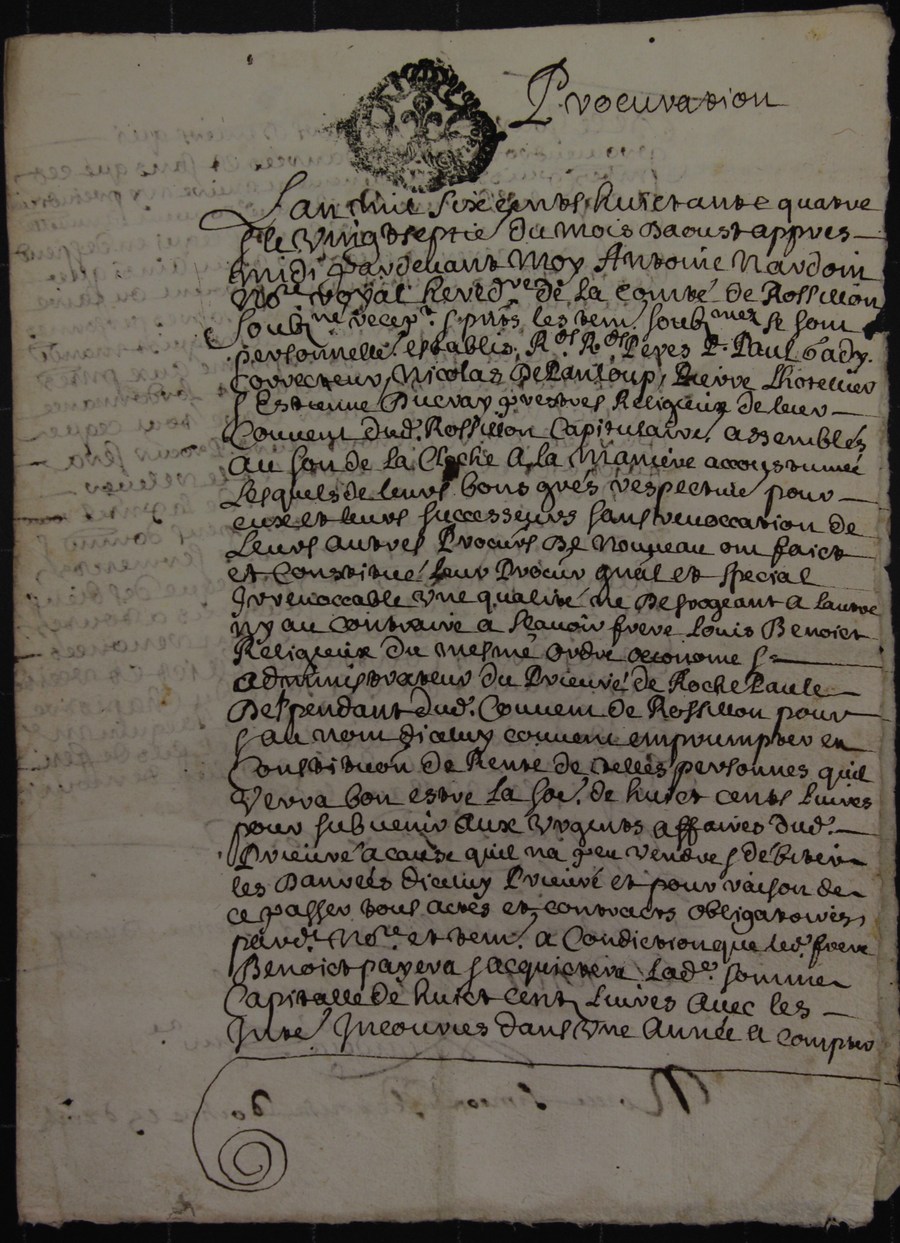 Procuration
Lan mil six cents huictante quatre
& le vingtseptie du mois daoust appres
midi pardevant moy Antoine Nardoin
no.re royal hered.re de la comté de Rossillon
soub.né recep.r & pnts les tem. soub.nez se sont
personnelle. establis, R.ds R.ds Peres P. Paul
Correcteur, Nicolas DePanloup, Pierre Lhotellier
& Estienne Ducray prestres Religieux de leur
Couvent dud. Rossillon Capitulaire. assemblés
au son de la Cloche A la maniere accoustumée
Lesquels de leurs bons grés respectivé pour
eux et leurs successeurs sans revoccation de
Leurs autres Procurs De nouveau ont faict
et Constitué Leur Procur gnal et special
Irrevoccable une qualité ne Desrogeant a lautre
ny au contraire a scavoir frere Louis Benoict
Religieux du mesme ordre œconome &
administrateur du Prieuré de RochePaule
Despendant dud. Couvent de Rossillon pour
& au nom diceluy couvent emprumpter en
Constituon de Rente de telles personnes quil
verra bon estre La so.e de huict cents Livres
pour subvenir aux urgents affaires dud.
Prieuré a cause quil na peu vendre & debiter
les Danrées diceluy Prieuré et pour raison de
ce passer tous actes et contracts obligatoires
pard.t no.re et tem. a Condiction que led. frere
Benoict payera & acquictera Lad.e somme
Capitalle de huict cent Livres avec les
Inté. Incourues dans une Année a compter